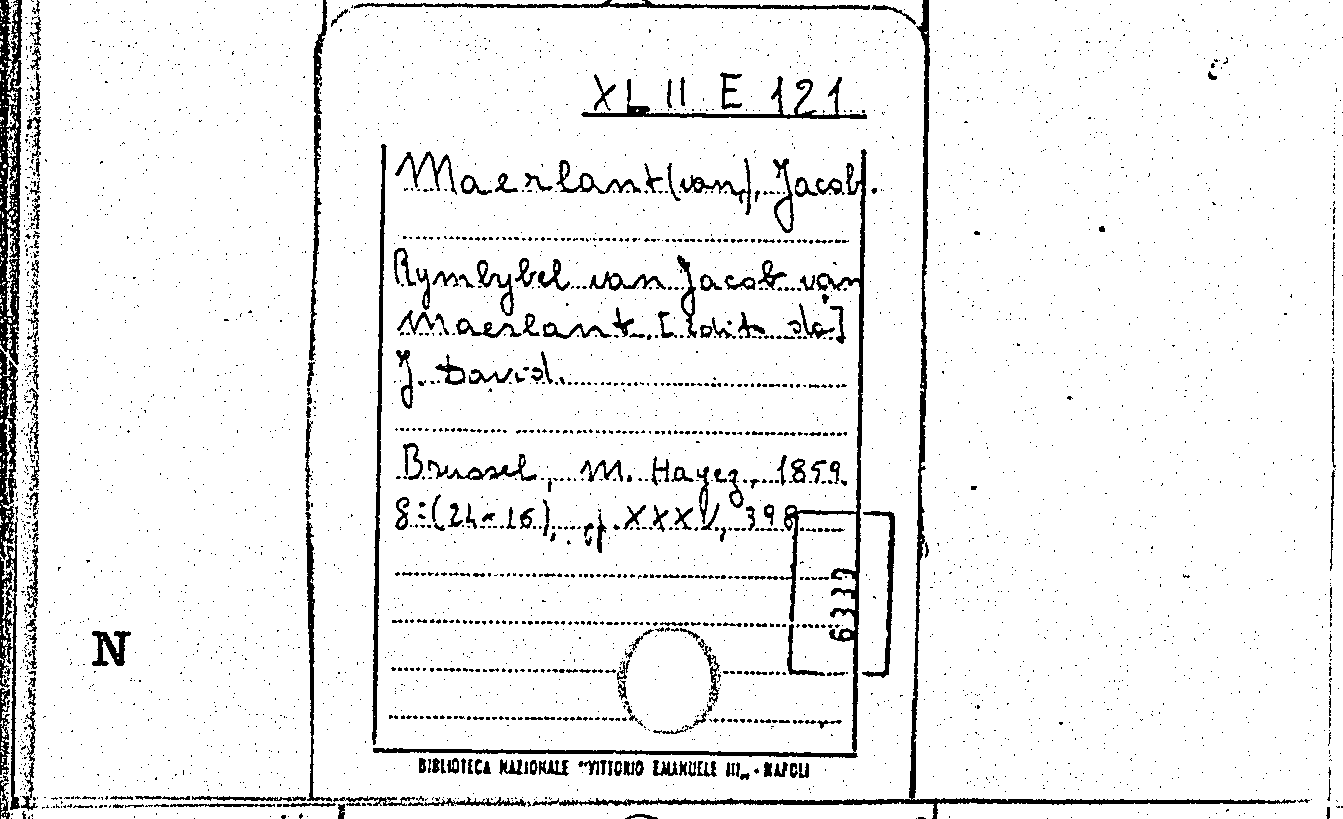 XLII E 121
Maerlant (van), Jacob.
Rymbybel van Jacob van
Maerlant. [Edito da]
J. David.
Brussel, M. Hayez, 1859.
8:(24×16), pp. XXXV, 398
6339
N
BIBLIOTECA NAZIONALE "VITTORIO EMANUELE III" - NAPOLI